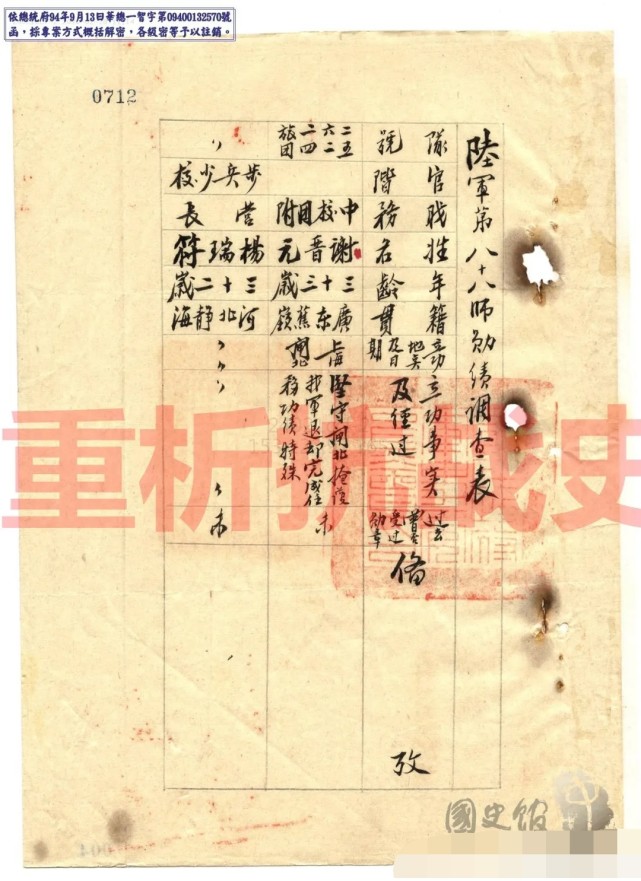 依總統府94年9月13日華總一智字第09400132570號
函,採專案方式概括解密,各級密等予以註銷。
0712
陸軍第八十八師勛績調查表
隊號
官階
職務
姓名
年齡
籍貫
立功地奌及日期
立功事实及经过
过去曾否受过勛章
備攷
二六二旅
五二四团
中校
团附
謝晋元
三十三歲
廣东蕉嶺
上海闸北
堅守闸北掩護
我軍退却完成任
務功绩特殊
未
〃
步兵少校
营長
楊瑞符
三十二歲
河北静海
〃
〃
〃
〃
未
重析抗戰史
國史館